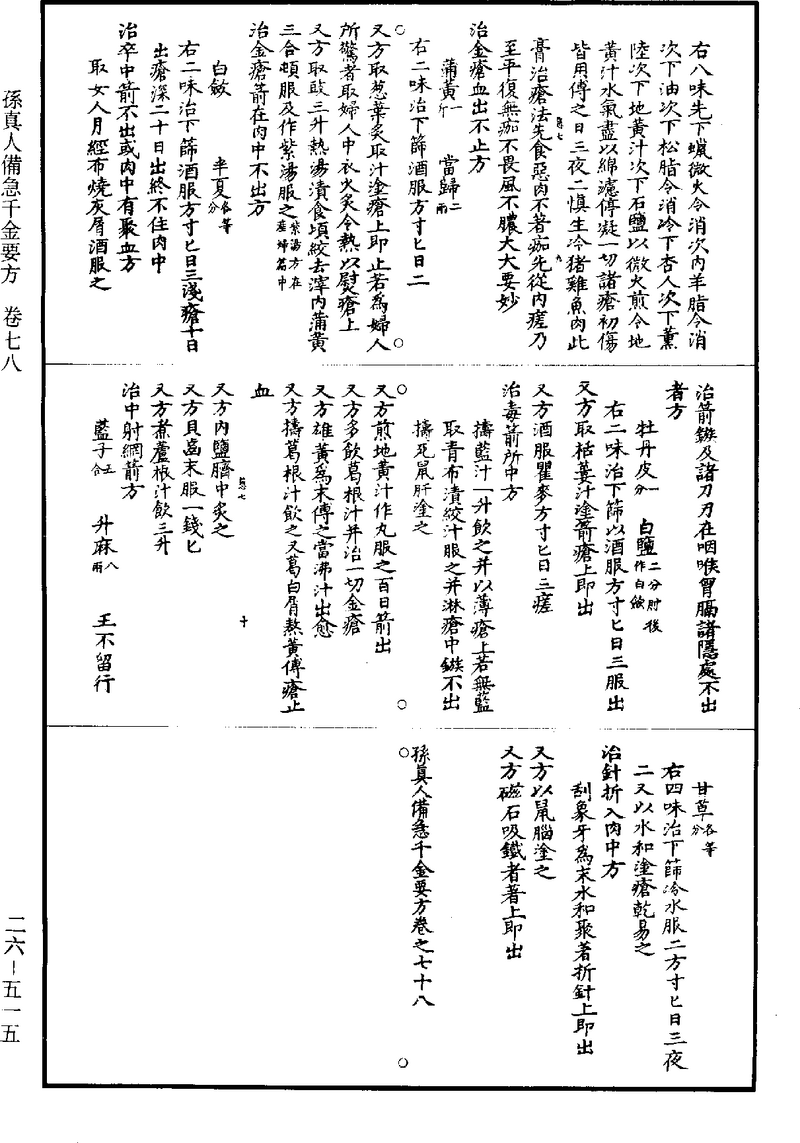 右八味先下蠟微火令消次內羊脂令消
次下油次下松脂令消冷下杏人次下薰
陸次下地黃汁次下石鹽以微火煎令地
黃汁水氣盡以綿濾停凝一切諸瘡初傷
皆用傅之日三夜二慎生冷猪雞魚肉此
膏治瘡法先食惡肉不著痂先從內瘥乃
至平復無痂不畏風不膿大大要妙
治金瘡血出不止方
蒲黃一斤 當歸二兩
右二味治下篩酒服方寸匕日二
又方取葱葉炙取汁塗瘡上即止若為婦人
所驚者取婦人中衣火炙令熱以熨瘡上
又方取豉三升熱湯漬食頃絞去滓內蒲黃
三合頓服及作紫湯服之紫湯方在產婦篇中
治金瘡箭在肉中不出方
白斂 半夏各等分
右二味治下篩酒服方寸匕日三淺瘡十日
出瘡深二十日出終不住肉中
治卒中箭不出或肉中有聚血方
取女人月經布燒灰屑酒服之
治箭鏃及諸刀刃在咽喉胷膈諸隱處不出
者方
牡丹皮一分 白鹽二分肘後作白斂
右二味治下篩以酒服方寸匕日三服出
又方取栝蔞汁塗箭瘡上即出
又方酒服瞿麥方寸匕日三瘥
治毒箭所中方
擣藍汁一升飲之并以薄瘡上若無藍
取青布漬絞汁服之并淋瘡中鏃不出
擣死鼠肝塗之
又方煎地黃汁作丸服之百日箭出
又方多飲葛根汁并治一切金瘡
又方雄黃為末傅之當沸汁出愈
又方擣葛根汁飲之又葛白屑熬黃傅瘡止
血
又方內鹽臍中炙之
又方貝齒末服一錢匕
又方煮蘆根汁飲三升
治中射網箭方
藍子五合 升麻八兩 王不留行
甘草各等分
右四味治下篩冷水服二方寸匕日三夜
二又以水和塗瘡乾易之
治針折入肉中方
刮象牙為末水和聚著折針上即出
又方以鼠腦塗之
又方磁石吸鐵者著上即出
孫真人備急千金要方卷之七十八
孫真人備急千金要方 卷七八
二六-五一五